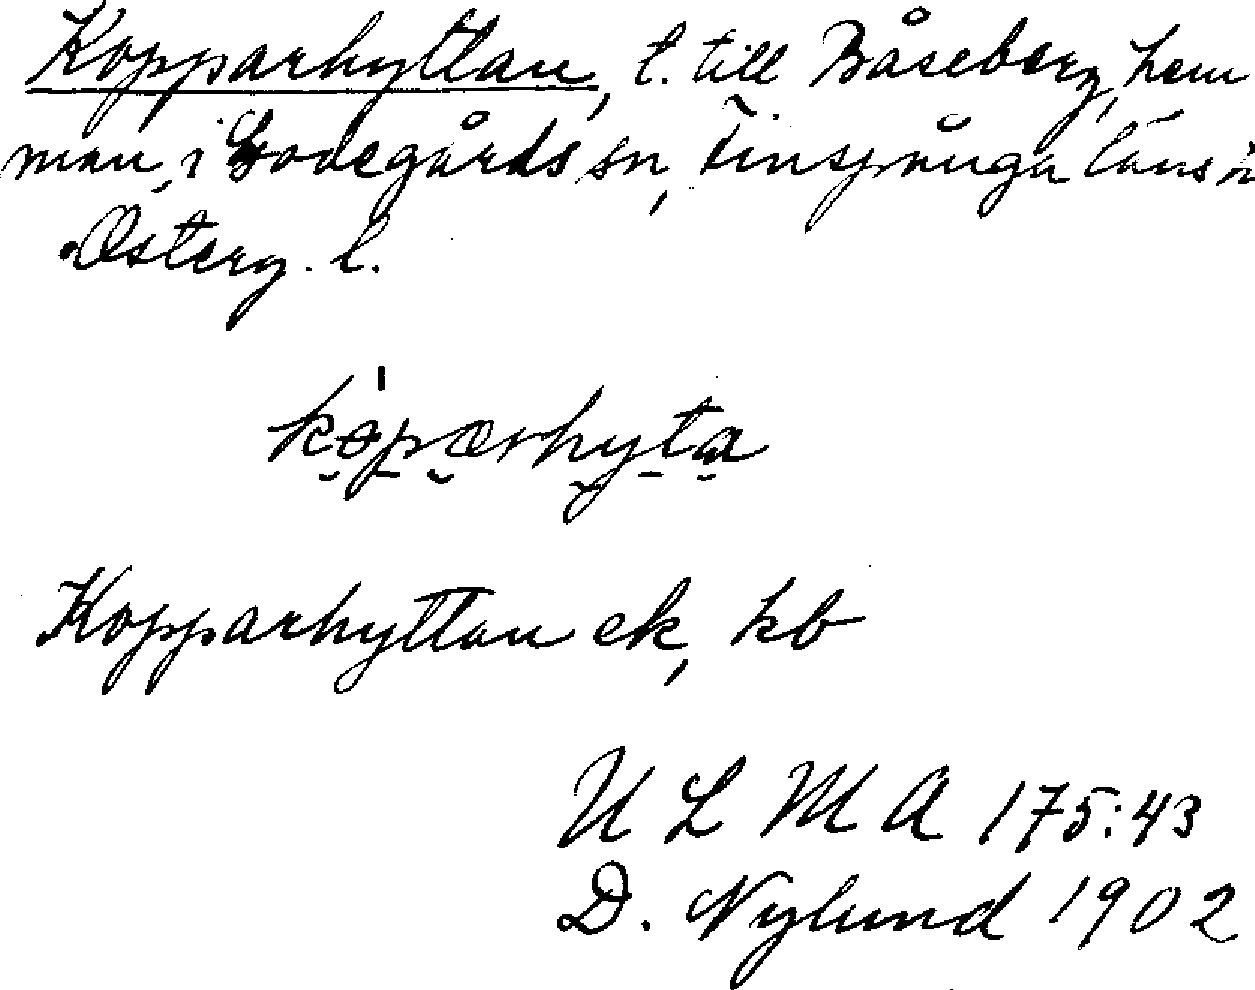 Kopparhyttan, t. till Båseberg, hem
man, i Godegårds sn, Finspånga läns i
Österg. l.
kopærhyta
Kopparhyttan ek, kb
U L M A 175:43
D. Nylund 1902